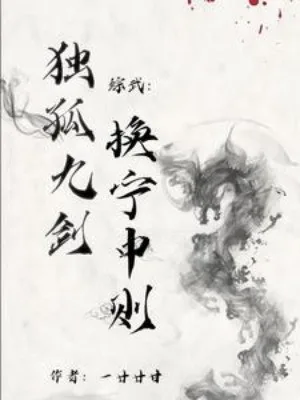 独孤九剑
综武：
换宁中则
作者：一廿廿廿